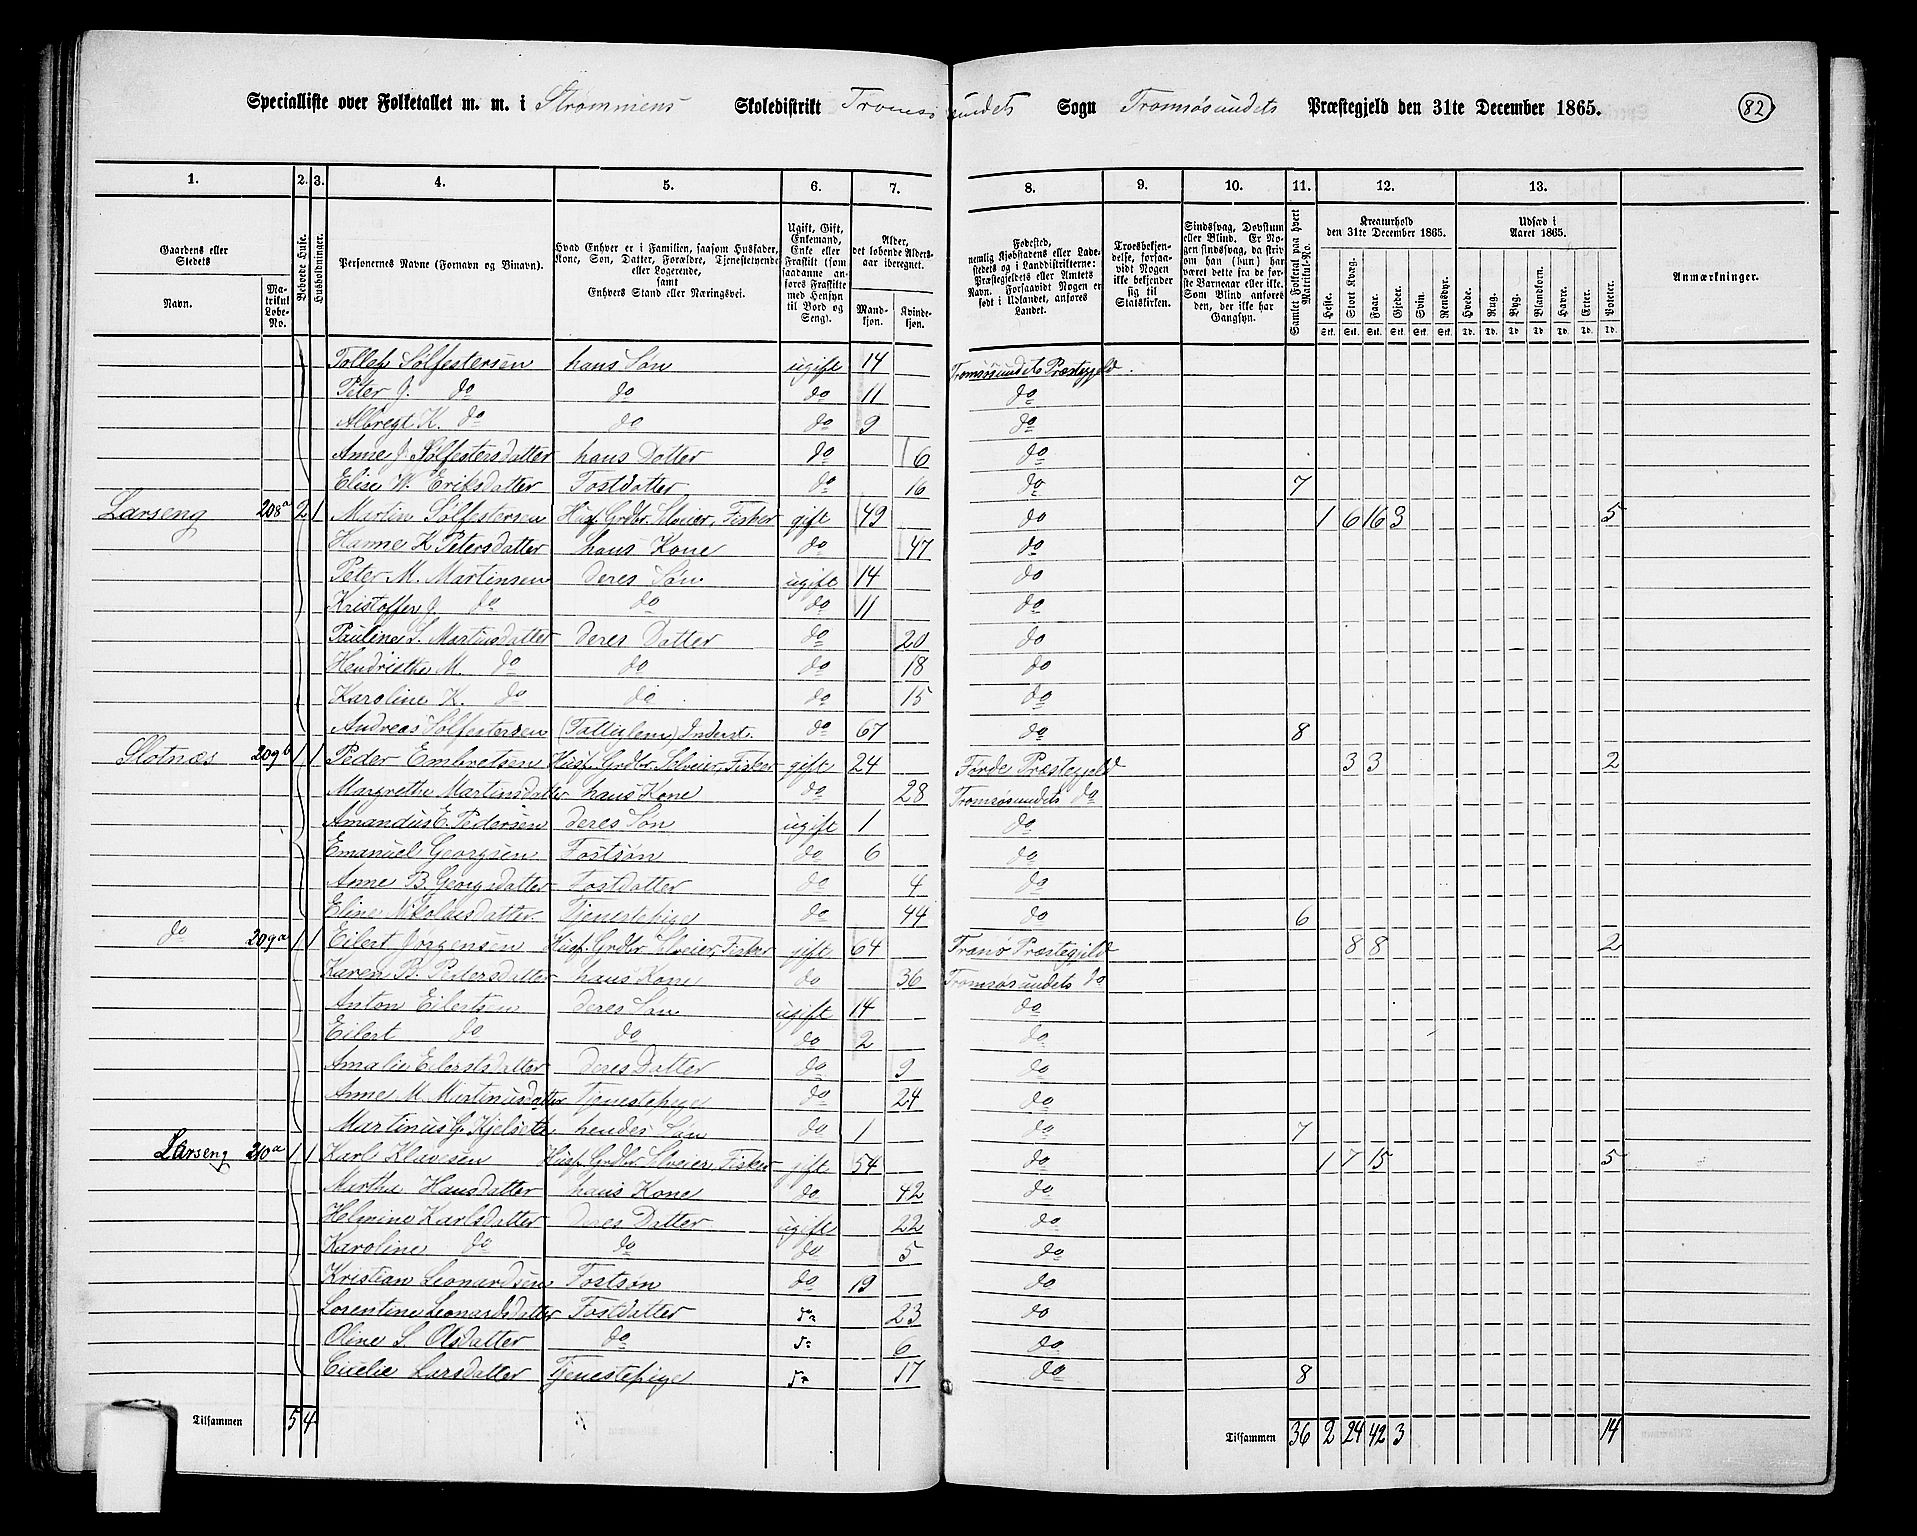 Specialliste over Folketallet m. m. i Strømmens Skoledistrikt Tromsøsundets Sogn Tromsøsundets Præstegjeld den 31te December 1865. 82
1. 2. 3. 4. 5. 6. 7. 8. 9. 10. 11. 12. 13.
Gaardens eller Stedets Navn. Matrikul Løbe-No.
Beboede Huse.
Husholdninger.
Personernes Navne (Fornavn og Binavn).
Hvad Enhver er i Familien, saasom Husfader, Kone, Søn, Datter, Forældre, Tjenestetyende eller Logerende, samt Enhvers Stand eller Næringsvei.
Ugift, Gift, Enkemand, Enke eller Fraskilt (som saadanne anføres Fraskilte med Hensyn til Bord og Seng).
Alder, det løbende Alders-aar iberegnet. Mandkjøn. Kvindekjøn.
Fødested, nemlig Kjøbstadens eller Ladestedets og i Landdistrikterne: Præstegjeldets eller Amtets Navn. Forsaavidt Nogen er født i Udlandet, anføres Landet.
Troesbekjendelse, forsaavidt Nogen ikke bekjender sig til Statskirken.
Sindssvag, Døvstum eller Blind. Er Nogen sindssvag, da skrives han (hun) at have været dette fra de første Barneaar eller ikke. Som Blind anføres den, der ikke har Gangsyn.
Samlet Folketal paa hvert Matrikul-No.
Kreaturhold den 31te December 1865. Heste. Stort Kvæg. Faar. Gjeder. Svin. Rensdyr.
Udsæd i Aaret 1865. Hvede. Rug. Byg. Blandkorn. Havre. Erter. Poteter.
Anmærkninger.
Tollef Sølfestersen hans Søn ugift 14 Tromsøsundets Præstegjeld
Peter J. do do do 11 do
Albregt K. do do do 9 do
Anne J. Sølfestersdatter hans Datter do 6 do
Elise W. Eriksdatter Fostdatter do 16 do 7
Larseng 208a 2 1 Martin Sølfestersen Husf. Grdbr. Selveier, Fisker gift 49 do 1 6 16 3 5
Hanne K. Petersdatter hans Kone do 47 do
Peter M. Martinsen deres Søn ugift 14 do
Kristoffer J. do do do 11 do
Pauline L. Martinsdatter deres Datter do 20 do
Hendrikthe M. do do do 18 do
Karoline K. do do do 15 do
Andreas Sølfestersen (Fattiglem) Inderst. do 67 do 8
Slotnæs 209b 1 1 Peder Embretsen Husf. Grdbr. Selveier, Fisker gift 24 Førde Præstegjeld 3 3 2
Margrethe Martinsdatter hans Kone do 28 Tromsøsundets do
Amandus E. Pedersen deres Søn ugift 1 do
Emanuel Georgsen Fostsøn do 6 do
Anne B. Georgsdatter Fostdatter do 4 do
Eline Nikolaisdatter Tjenestepige do 44 do 6
do 209a 1 1 Eilert Jørgensen Husf. Grdbr. Selveier, Fisker gift 64 Tranø Præstegjeld 8 8 2
Karen B. Pedersdatter hans Kone do 36 Tromsøsundets do
Anton Eilertsen deres Søn ugift 14 do
Eilert do do do 2 do
Amalie Eilertsdatter deres Datter do 9 do
Anne M. Martinusdatter Tjenestepige do 24 do
Martinus G. Kjelseth hendes Søn do 1 do 7
Larseng 210a 1 1 Karl Klavesen Husf. Grdbr. Selveier, Fisker gift 54 do 1 7 15 5
Marthe Hansdatter hans Kone do 42 do
Helmine Karlsdatter deres Datter ugift 22 do
Karoline do do do 5 do
Kristian Leonardsen Fostsøn do 19 do
Lorentine Leonardsdatter Fostdatter do 23 do
Oline S. Olsdatter do do 6 do
Cicelie Larsdatter Tjenestepige do 17 do 8
Tilsammen 5 4 Tilsammen 36 2 24 42 3 14